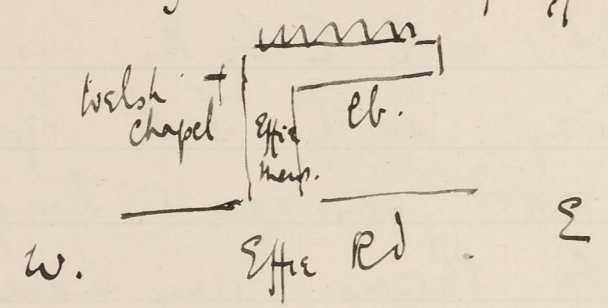 Welsh
Chapel
Effie
mews.
Cb.
W.
Effie Rd.
E